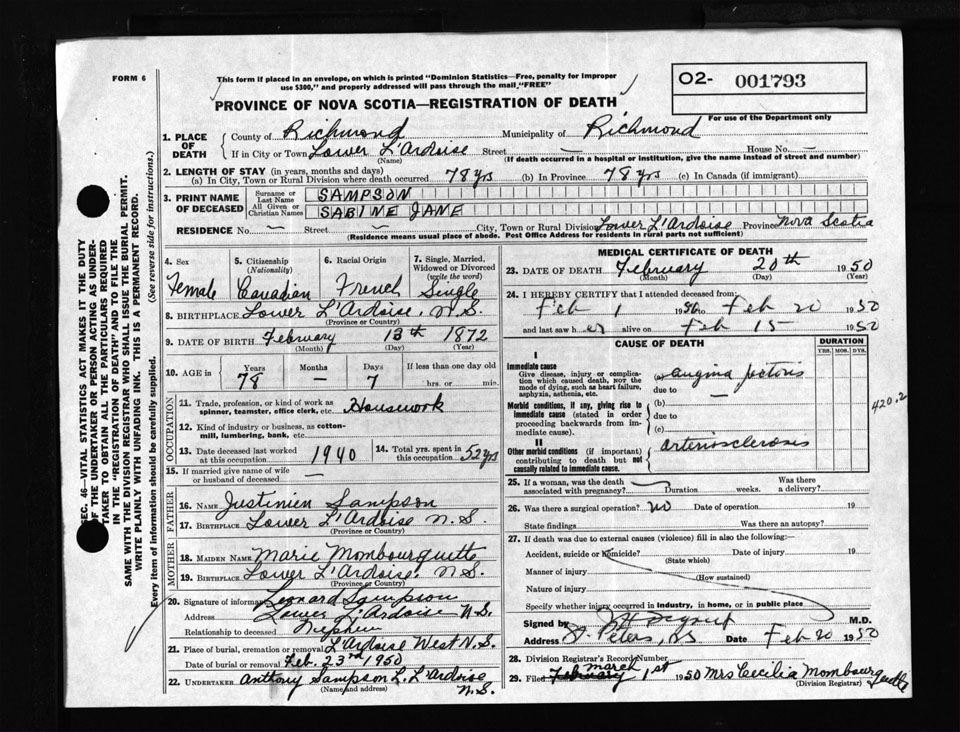 FORM 6
This form if placed in an envelope, on which is printed "Dominion Statistics—Free, penalty for improper
use $300," and properly addressed will pass through the mail, "FREE"
O2- 001793
For use of the Department only
PROVINCE OF NOVA SCOTIA—REGISTRATION OF DEATH
SEC. 46—VITAL STATISTICS ACT MAKES IT THE DUTY
OF THE UNDERTAKER OR PERSON ACTING AS UNDER-
TAKER TO OBTAIN ALL THE PARTICULARS REQUIRED
IN THE "REGISTRATION OF DEATH" AND TO FILE THE
SAME WITH THE DIVISION REGISTRAR WHO SHALL ISSUE THE BURIAL PERMIT.
WRITE PLAINLY WITH UNFADING INK. THIS IS A PERMANENT RECORD.
Every item of information should be carefully supplied. (See reverse side for instructions.)
1. PLACE OF DEATH
County of Richmond Municipality of Richmond
If in City or Town Lower L'Ardoise Street — House No. —
(Name) (If death occurred in a hospital or institution, give the name instead of street and number)
2. LENGTH OF STAY (in years, months and days)
(a) In City, Town or Rural Division where death occurred 78 yrs (b) In Province 78 yrs (c) In Canada (if immigrant)
3. PRINT NAME OF DECEASED
Surname or Last Name SAMPSON
All Given or Christian Names SABINE JANE
RESIDENCE No. — Street — City, Town or Rural Division Lower L'Ardoise Province Nova Scotia
(Residence means usual place of abode. Post Office Address for residents in rural parts not sufficient)
4. Sex 5. Citizenship (Nationality) 6. Racial Origin 7. Single, Married, Widowed or Divorced (write the word)
Female Canadian French Single
8. BIRTHPLACE Lower L'Ardoise, N.S.
(Province or Country)
9. DATE OF BIRTH February 13th 1872
(Month) (Day) (Year)
10. AGE in Years Months Days If less than one day old
78 — 7 hrs. or min.
OCCUPATION
11. Trade, profession, or kind of work as
spinner, teamster, office clerk, etc. Housework
12. Kind of industry or business, as cotton-
mill, lumbering, bank, etc.
13. Date deceased last worked
at this occupation 1940
14. Total yrs. spent in
this occupation 52 yrs
15. If married give name of wife
or husband of deceased —
FATHER
16. Name Justinien Sampson
17. Birthplace Lower L'Ardoise N.S.
MOTHER
18. Maiden Name Marie Mombourquette
19. Birthplace Lower L'Ardoise, N.S.
(Province or Country)
20. Signature of informant Leonard Sampson
Address Lower L'Ardoise N.S.
Relationship to deceased Nephew
21. Place of burial, cremation or removal L'Ardoise West N.S.
Date of burial or removal Feb. 23rd 1950
22. UNDERTAKER Anthony Sampson L. L'Ardoise
(Name and address) N.S.
MEDICAL CERTIFICATE OF DEATH
23. DATE OF DEATH February 20th 1950
(Month) (Day) (Year)
24. I HEREBY CERTIFY that I attended deceased from:
Feb 1 1950 to Feb 20 1950
and last saw her alive on Feb 15 1950
CAUSE OF DEATH
DURATION
YRS. MOS. DYS.
I
Immediate cause
Give disease, injury or complica-
tion which caused death, NOT the
mode of dying, such as heart failure,
asphyxia, asthenia, etc.
(a) angina pectoris
due to
Morbid conditions, if any, giving rise to
immediate cause (stated in order
proceeding backwards from im-
mediate cause).
(b) —
due to
(c)
420.2
II
Other morbid conditions (if important)
contributing to death but not
causally related to immediate cause.
arteriosclerosis
25. If a woman, was the death
associated with pregnancy? Duration weeks. Was there
a delivery?
26. Was there a surgical operation? no Date of operation 19
State findings Was there an autopsy?
27. If death was due to external causes (violence) fill in also the following:—
Accident, suicide or homicide? Date of injury 19
(State which)
Manner of injury
(How sustained)
Nature of injury
Specify whether injury occurred in industry, in home, or in public place
Signed by M.D.
Address St. Peters, NS Date Feb 20 1950
28. Division Registrar's Record Number
29. Filed March 1st 1950 Mrs Cecilia Mombourquette
(Division Registrar)